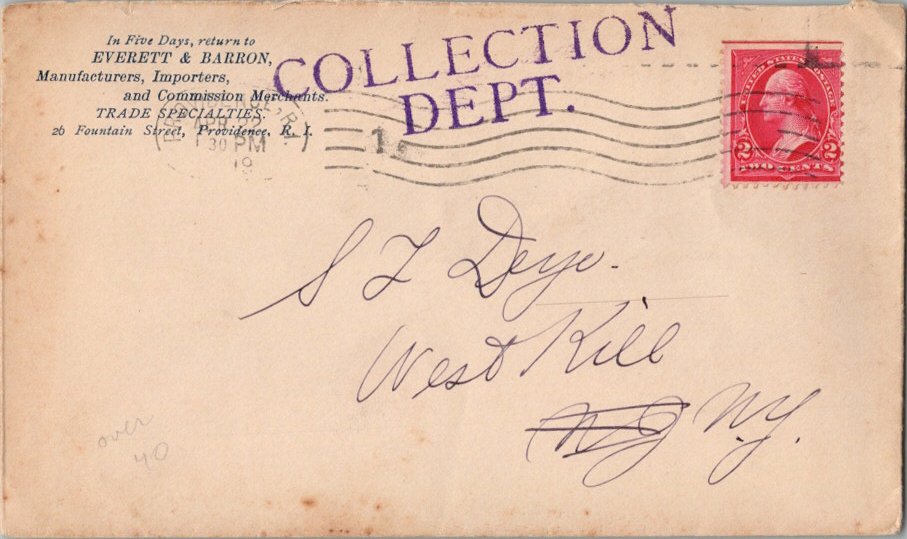 In Five Days, return to
EVERETT & BARRON,
Manufacturers, Importers,
and Commission Merchants.
TRADE SPECIALTIES.
26 Fountain Street, Providence, R. I.
COLLECTION
DEPT.
PROVIDENCE, R.I.
APR 22
30 PM
19
1
UNITED STATES POSTAGE
2 2
TWO CENTS
S F Deyo.
West Kill
NJ NY.
over
40